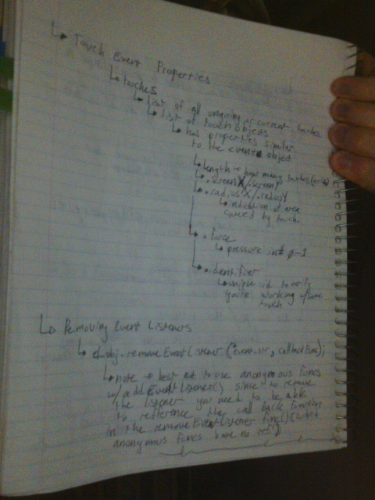 ↳ Touch Event Properties
↳ touches
↳ list of all ongoing or current touches
↳ list of touch objects
↳ has properties similar
to the event object
↳ length → how many touches
↳ .screenX/.screenY
↳ .radiusX/.radiusY
↳ indicative of area
covered by touch
↳ .force
↳ pressure
↳ .identifier
↳ unique id to verify
you're working w/same
touch
↳ Removing Event Listeners
↳ obj.removeEventListener("event", callbackfunc);
↳ note → best not to use anonymous funcs
w/addEventListener() since to remove
the listener you need to be able
to refference the call back function
in the removeEventListener func()
anonymous funcs have no ref)